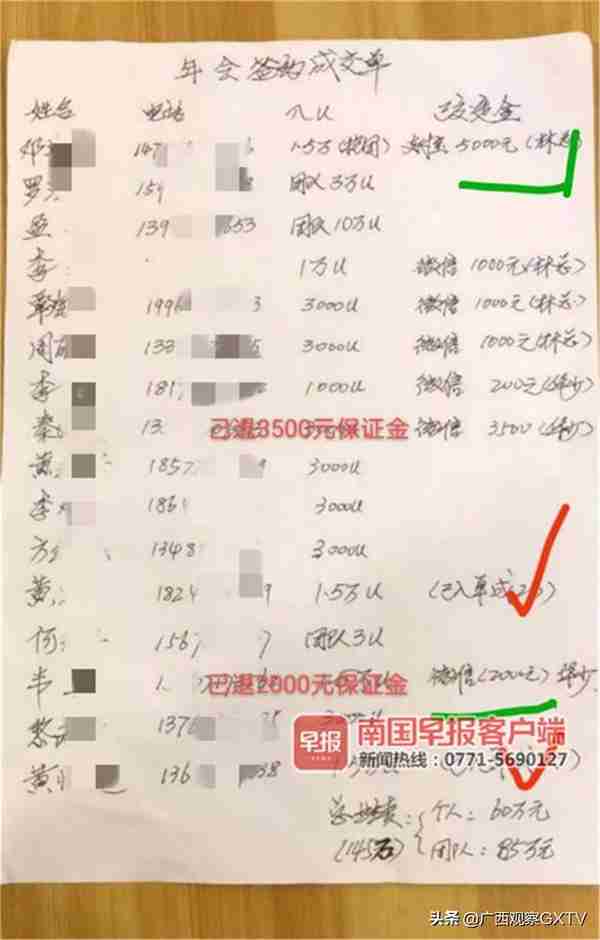 年会签约成交单
姓名 电话 入U 已交定金
邓 147 1.5万(抱团) 5000元(林总)
罗 159 8 团队3万U
蓝 139 653 团队10万U
李 1万U 微信1000元(林总)
覃 1996 3 3000U 微信1000元(林总)
周 133 5 3000U 微信1000元(林总)
李 181 1000U 微信200元(华少)
秦 13 已退3500元保证金 微信3500(华少)
黄 1857 9 3000U
李 1864 3000U
方 1348 3000U
黄 1824 9 1.5万U
何 156 7 团队3U
韦 已退2000元保证金 微信(2000元)华少
黎 1376 5
早报 南国早报客户端
新闻热线:0771-5690127
黄 136 38
总业绩:个人:60万元
(145万) 团队:85万元
头条 @广西观察GXTV